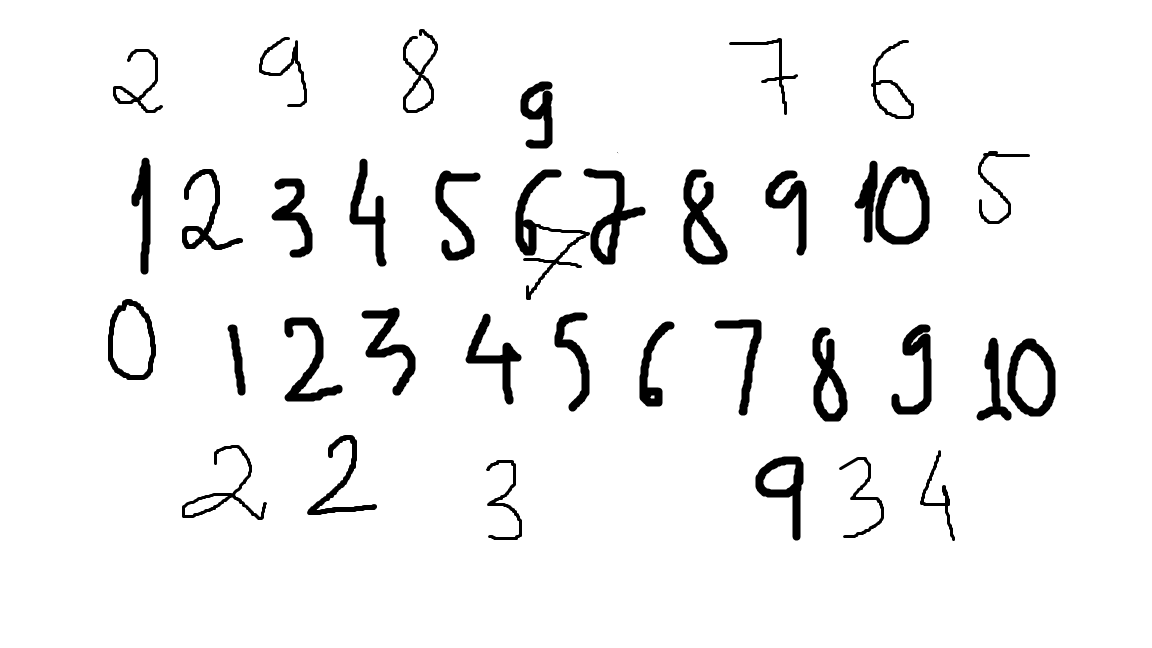 2 9 8 9 7 6
1 2 3 4 5 6 7 8 9 10 5
7
0 1 2 3 4 5 6 7 8 9 10
2 2 3 9 3 4